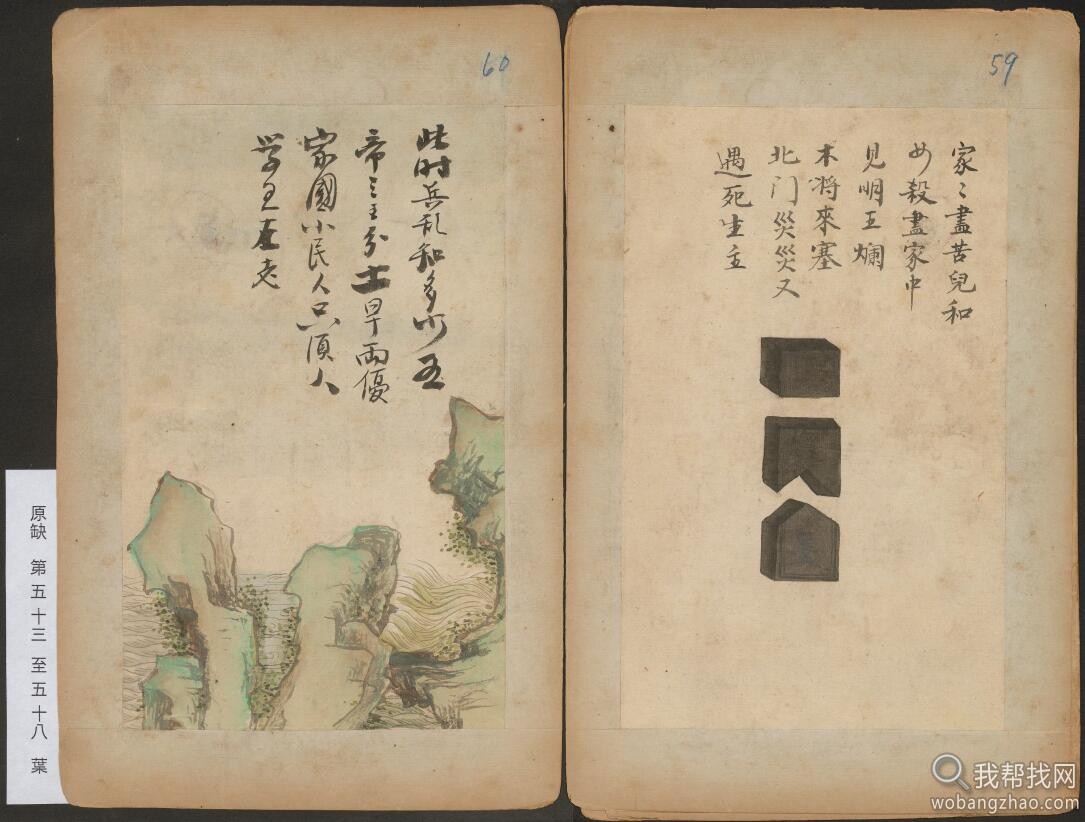 59
家〻盡苦兒和
女殺盡家中
見明五爛
木将來塞
北门災災又
遇死生主
60
此时兵乱和多少五
帝三王分士旱雨優
家國小民人只須人
学里在老
原缺 第五十三至五十八 葉
我帮找网
wobangzhao.com